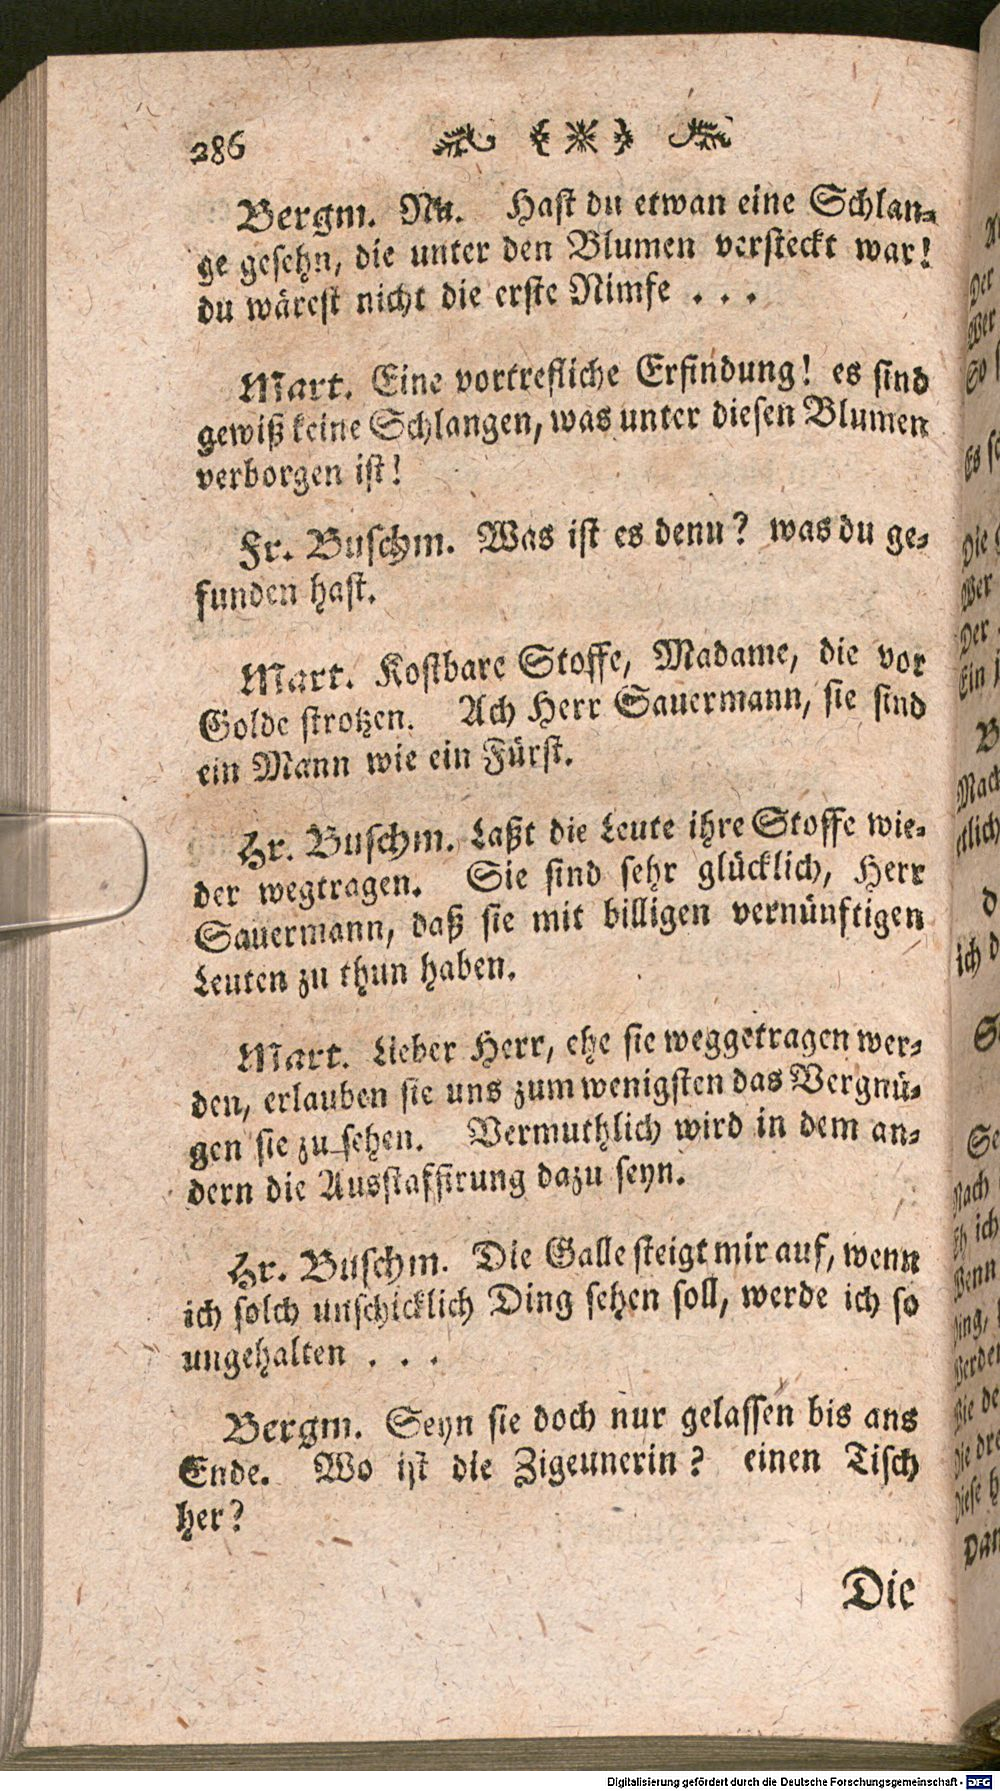 286
Bergm. Nu. Hast du etwan eine Schlan-
ge gesehn, die unter den Blumen versteckt war!
du wärest nicht die erste Nimfe . . .
Mart. Eine vortrefliche Erfindung! es sind
gewiß keine Schlangen, was unter diesen Blumen
verborgen ist!
Fr. Buschm. Was ist es denn? was du ge-
funden hast.
Mart. Kostbare Stoffe, Madame, die vor
Golde strotzen. Ach Herr Sauermann, sie sind
ein Mann wie ein Fürst.
Hr. Buschm. Laßt die Leute ihre Stoffe wie-
der wegtragen. Sie sind sehr glücklich, Herr
Sauermann, daß sie mit billigen vernünftigen
Leuten zu thun haben.
Mart. Lieber Herr, ehe sie weggetragen wer-
den, erlauben sie uns zum wenigsten das Vergnü-
gen sie zu sehen. Vermuthlich wird in dem an-
dern die Ausstaffirung dazu seyn.
Hr. Buschm. Die Galle steigt mir auf, wenn
ich solch unschicklich Ding sehen soll, werde ich so
ungehalten . . .
Bergm. Seyn sie doch nur gelassen bis ans
Ende. Wo ist die Zigeunerin? einen Tisch
her?
Die
Digitalisierung gefördert durch die Deutsche Forschungsgemeinschaft - DFG